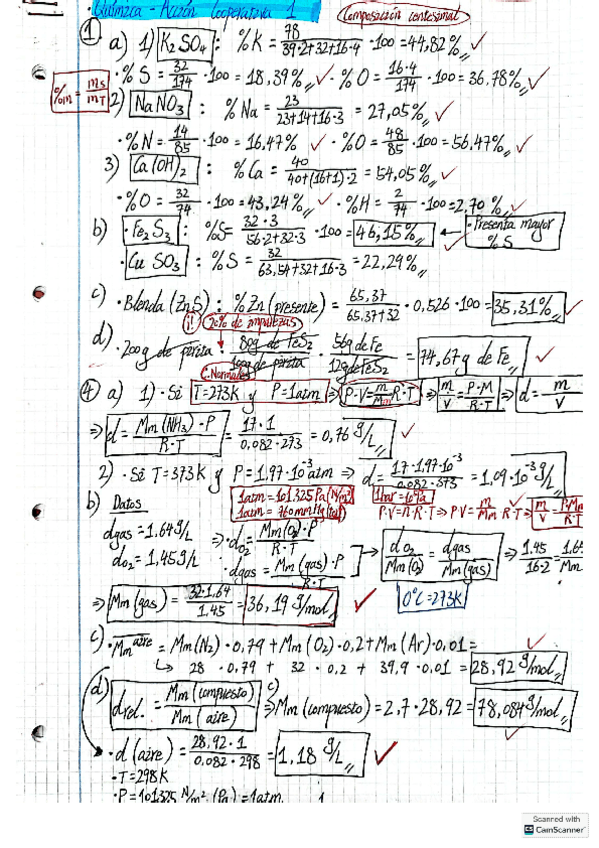 Química - Acción Cooperativa 1 Composición centesimal
① a) 1) K₂SO₄ : %K = 78 / 39·2+32+16·4 · 100 = 44,82%
%m = ms / mT
· %S = 32/174 · 100 = 18,39% · %O = 16·4/174 · 100 = 36,78%
2) NaNO₃ : %Na = 23 / 23+14+16·3 = 27,05%
· %N = 14/85 · 100 = 16,47% · %O = 48/85 · 100 = 56,47%
3) Ca(OH)₂ : %Ca = 40 / 40+(16+1)·2 = 54,05%
· %O = 32/74 · 100 = 43,24% · %H = 2/74 · 100 = 2,70%
b) · Fe₂S₃ : %S = 32·3 / 56·2+32·3 · 100 = 46,15% ← · Presenta mayor % S
· CuSO₃ : %S = 32 / 63,54+32+16·3 = 22,29%
c) · Blenda (ZnS) : %Zn (presente) = 65,37 / 65,37+32 · 0,526 · 100 = 35,31%
¡! 20% de impurezas
d) · 200g de pirita · 80g de FeS₂ / 100g de pirita · 56g de Fe / 120g de FeS₂ = 74,67g de Fe
④ a) 1) · Si T=273K y P=1atm ⇒ P·V = m/Mm R·T ⇒ m/V = P·M/R·T ⇒ d = m/V
⇒ d = Mm(NH₃)·P / R·T = 17·1 / 0,082·273 = 0,76 g/L
2) · Si T=373K y P=1,97·10⁻³ atm ⇒ d = 17·1,97·10⁻³ / 0,082·373 = 1,09·10⁻³ g/L
1atm = 101.325 Pa (N/m²) 1bar = 10⁵Pa
1atm = 760mmHg P·V = n·R·T ⇒ P·V = m/Mm R·T ⇒ m/V = P·Mm/R·T
b) Datos
dgas = 1,64 g/L ⇒ · dO₂ = Mm(O₂)·P / R·T
dO₂ = 1,45 g/L · dgas = Mm(gas)·P / R·T → dO₂ / Mm(O₂) = dgas / Mm(gas) ⇒ 1,45 / 16·2 = 1,6 / Mm
⇒ Mm(gas) = 32·1,64 / 1,45 = 36,19 g/mol 0°C = 273K
c) · Mm aire = Mm(N₂)·0,79 + Mm(O₂)·0,2 + Mm(Ar)·0,01 =
↳ 28 · 0,79 + 32 · 0,2 + 39,9 · 0,01 = 28,92 g/mol
d) drel. = Mm(compuesto) / Mm(aire) c) ⇒ Mm(compuesto) = 2,7 · 28,92 = 78,084 g/mol
· d(aire) = 28,92·1 / 0,082·298 = 1,18 g/L
· T = 298K
· P = 101325 N/m² (Pa) = 1atm
Scanned with
CS CamScanner